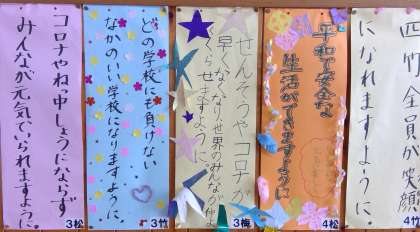 四竹 全員が笑顔
になれますように。
4竹
平和で安全な
生活ができますように
4松
せんそうやコロナが
早くなくなり世界のみんなが
くらせますように。
3梅
どの学校にも負けない
なかのいい学校になりますように。
3竹
コロナやねっ中しょうにならず
みんなが元気でいられますように。
3松